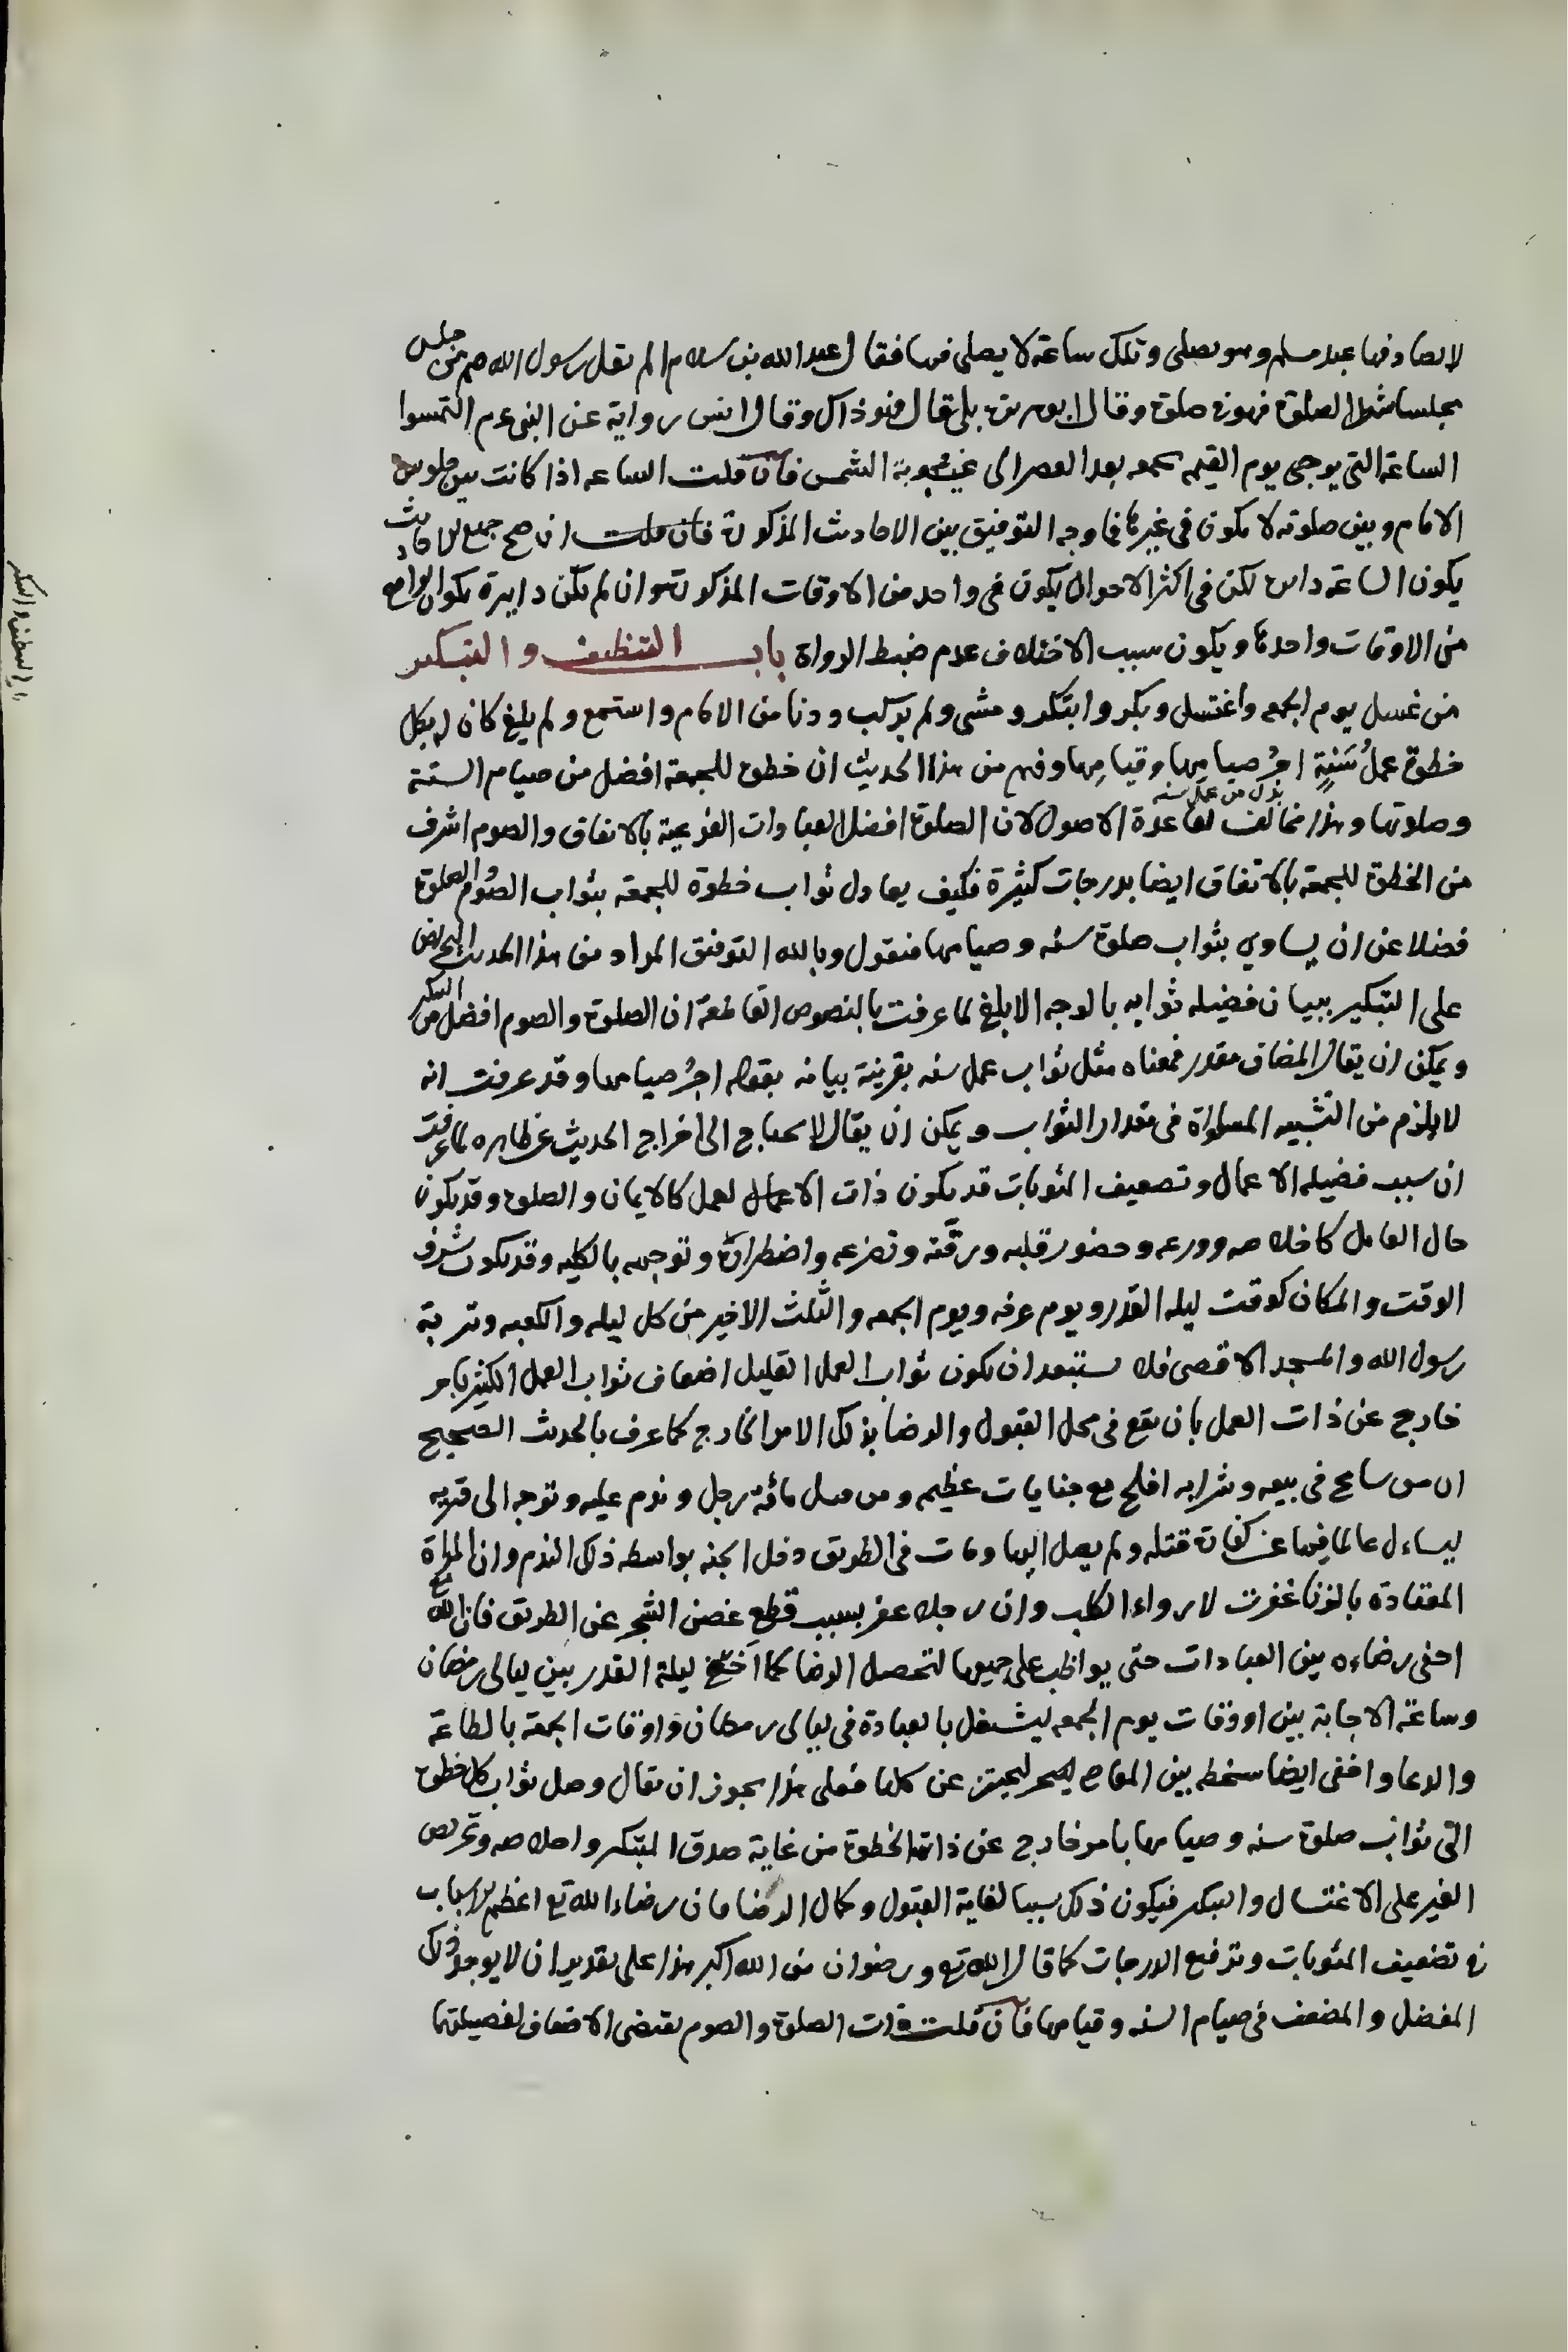 لا يصادفها عبد مسلم وهو يصلى وتلك ساعة لا يصلى فيها فقال عبد الله بن سلام الم يقل رسول الله صم من جلس
مجلسا ينتظر الصلوة فهو فى صلوة وقال ابو هريرة بلى قال فهو ذاك وقال انس رواية عن النبى عم التمسوا
الساعة التى يوجى يوم القيمه بعد العصر الى غيبوبة الشمس فان قلت الساعه اذا كانت بين جلوس
الامام وبين صلوته لا يكون فى غيرها فما وجه التوفيق بين الاحاديث المذكورة فان قلت ان صح جميع الاحاديث
يكون الساعة دايرة لكن فى اكثر الاحوال يكون فى واحد من الاوقات المذكورة وان لم يكن دايرة يكون الواقع
من الاوقات واحدها ويكون سبب الاختلاف عدم ضبط الرواة باب التنظيف و التبكير
من غسل يوم الجمعه واغتسل وبكر وابتكر ومشى ولم يركب ودنا من الامام واستمع ولم يلغ كان له بكل
خطوة عمل سنة اجر صيامها وقيامها وفهم من هذا الحديث ان خطوة للجمعة افضل من صيام السنة
بدل من عمل سنه
وصلوتها وهذا مخالف لقاعدة الاصول لان الصلوة افضل العبادات الفرعية بالاتفاق والصوم اشرف
من الخطوة للجمعة بالاتفاق ايضا بدرجات كثيرة فكيف يعادل ثواب خطوة للجمعة بثواب الصوم والصلوة
فضلا عن ان يساوي بثواب صلوة سنه وصيامها فنقول وبالله التوفيق المراد من هذا الحديث التحريض
على التبكير ببيان فضيله ثوابه بالوجه الابلغ لما عرفت بالنصوص القاطعة ان الصلوة والصوم افضل من التبكير
ويمكن ان يقال المضاف مقدر فمعناه مثل ثواب عمل سنه بقرينة بيانه بقوله اجر صيامها وقد عرفت انه
لا يلزم من التشبيه المساواة فى مقدار الثواب ويمكن ان يقال لا يحتاج الى اخراج الحديث عن ظاهره لما عرفت
ان سبب فضيله الاعمال وتضعيف المثوبات قد يكون ذات الاعمال لعمل كالايمان والصلوة وقد يكون
حال العامل كاخلاصه وورعه وحضور قلبه ورقته وتضرعه واضطراره وتوجهه بالكليه وقد يكون شرف
الوقت والمكان كوقت ليله القدر ويوم عرفه ويوم الجمعه والثلث الاخير من كل ليله والكعبه وتربة
رسول الله والمسجد الاقصى فلا يستبعد ان يكون ثواب العمل القليل اضعاف ثواب العمل الكثير بامر
خارج عن ذات العمل بان يقع فى محل القبول والرضا بذلك الامر الخارج كما عرف بالحديث الصحيح
ان من سامح فى بيعه وشرابه افلح مع جنايات عظيمه ومن قتل مائة رجل وندم عليه وتوجه الى قريه
ليساءل عالما فيها عن كفارة قتله ولم يصل اليها ومات فى الطريق دخل الجنه بواسطه ذلك الندم وان المراة
المعتادة بالزنا غفرت لارواء الكلب وان رجلا غفر بسبب قطع غصن الشجر عن الطريق فان الله تع
اخفى رضاءه بين العبادات حتى يواظب على جميعها لتحصل الرضا كما اخفى ليلة القدر بين ليالى رمضان
وساعة الاجابة بين اوقات يوم الجمعه ليشتغل بالعبادة فى ليالى رمضان واوقات الجمعة بالطاعة
والدعا واخفى ايضا سخطه بين المعاصى ليجتنب عن كلها فعلى هذا يجوز ان يقال وصل ثواب كل خطوة
الى ثواب صلوة سنه وصيامها بامر خارج عن ذات الخطوة من غاية صدق المبتكر واخلاصه وتحريص
الغير على الاغتسال والتبكير فيكون ذلك سببا لغاية القبول وكمال الرضا فان رضاء الله تع اعظم الاسباب
فى تضعيف المثوبات وترفيع الدرجات كما قال الله تع ورضوان من الله اكبر هذا على تقدير ان لا يوجد ذلك
المفضل والمضعف فى صيام السنه وقيامها فان قلت ذات الصلوة والصوم يقتضى الاضعاف لفضيلتها